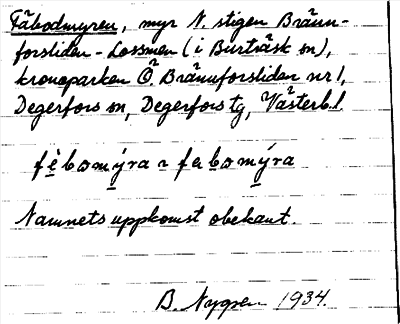 Fäbodmyren, myr N. stigen Brännforsliden - Lossmen (i Burträsk sn),
kronoparken Ö. Brännforsliden nr 1,
Degerfors sn, Degerfors tg, Västerb. l.
fèbomýra ~ febomýra
Namnets uppkomst obekant.
B. Nygren 1934.